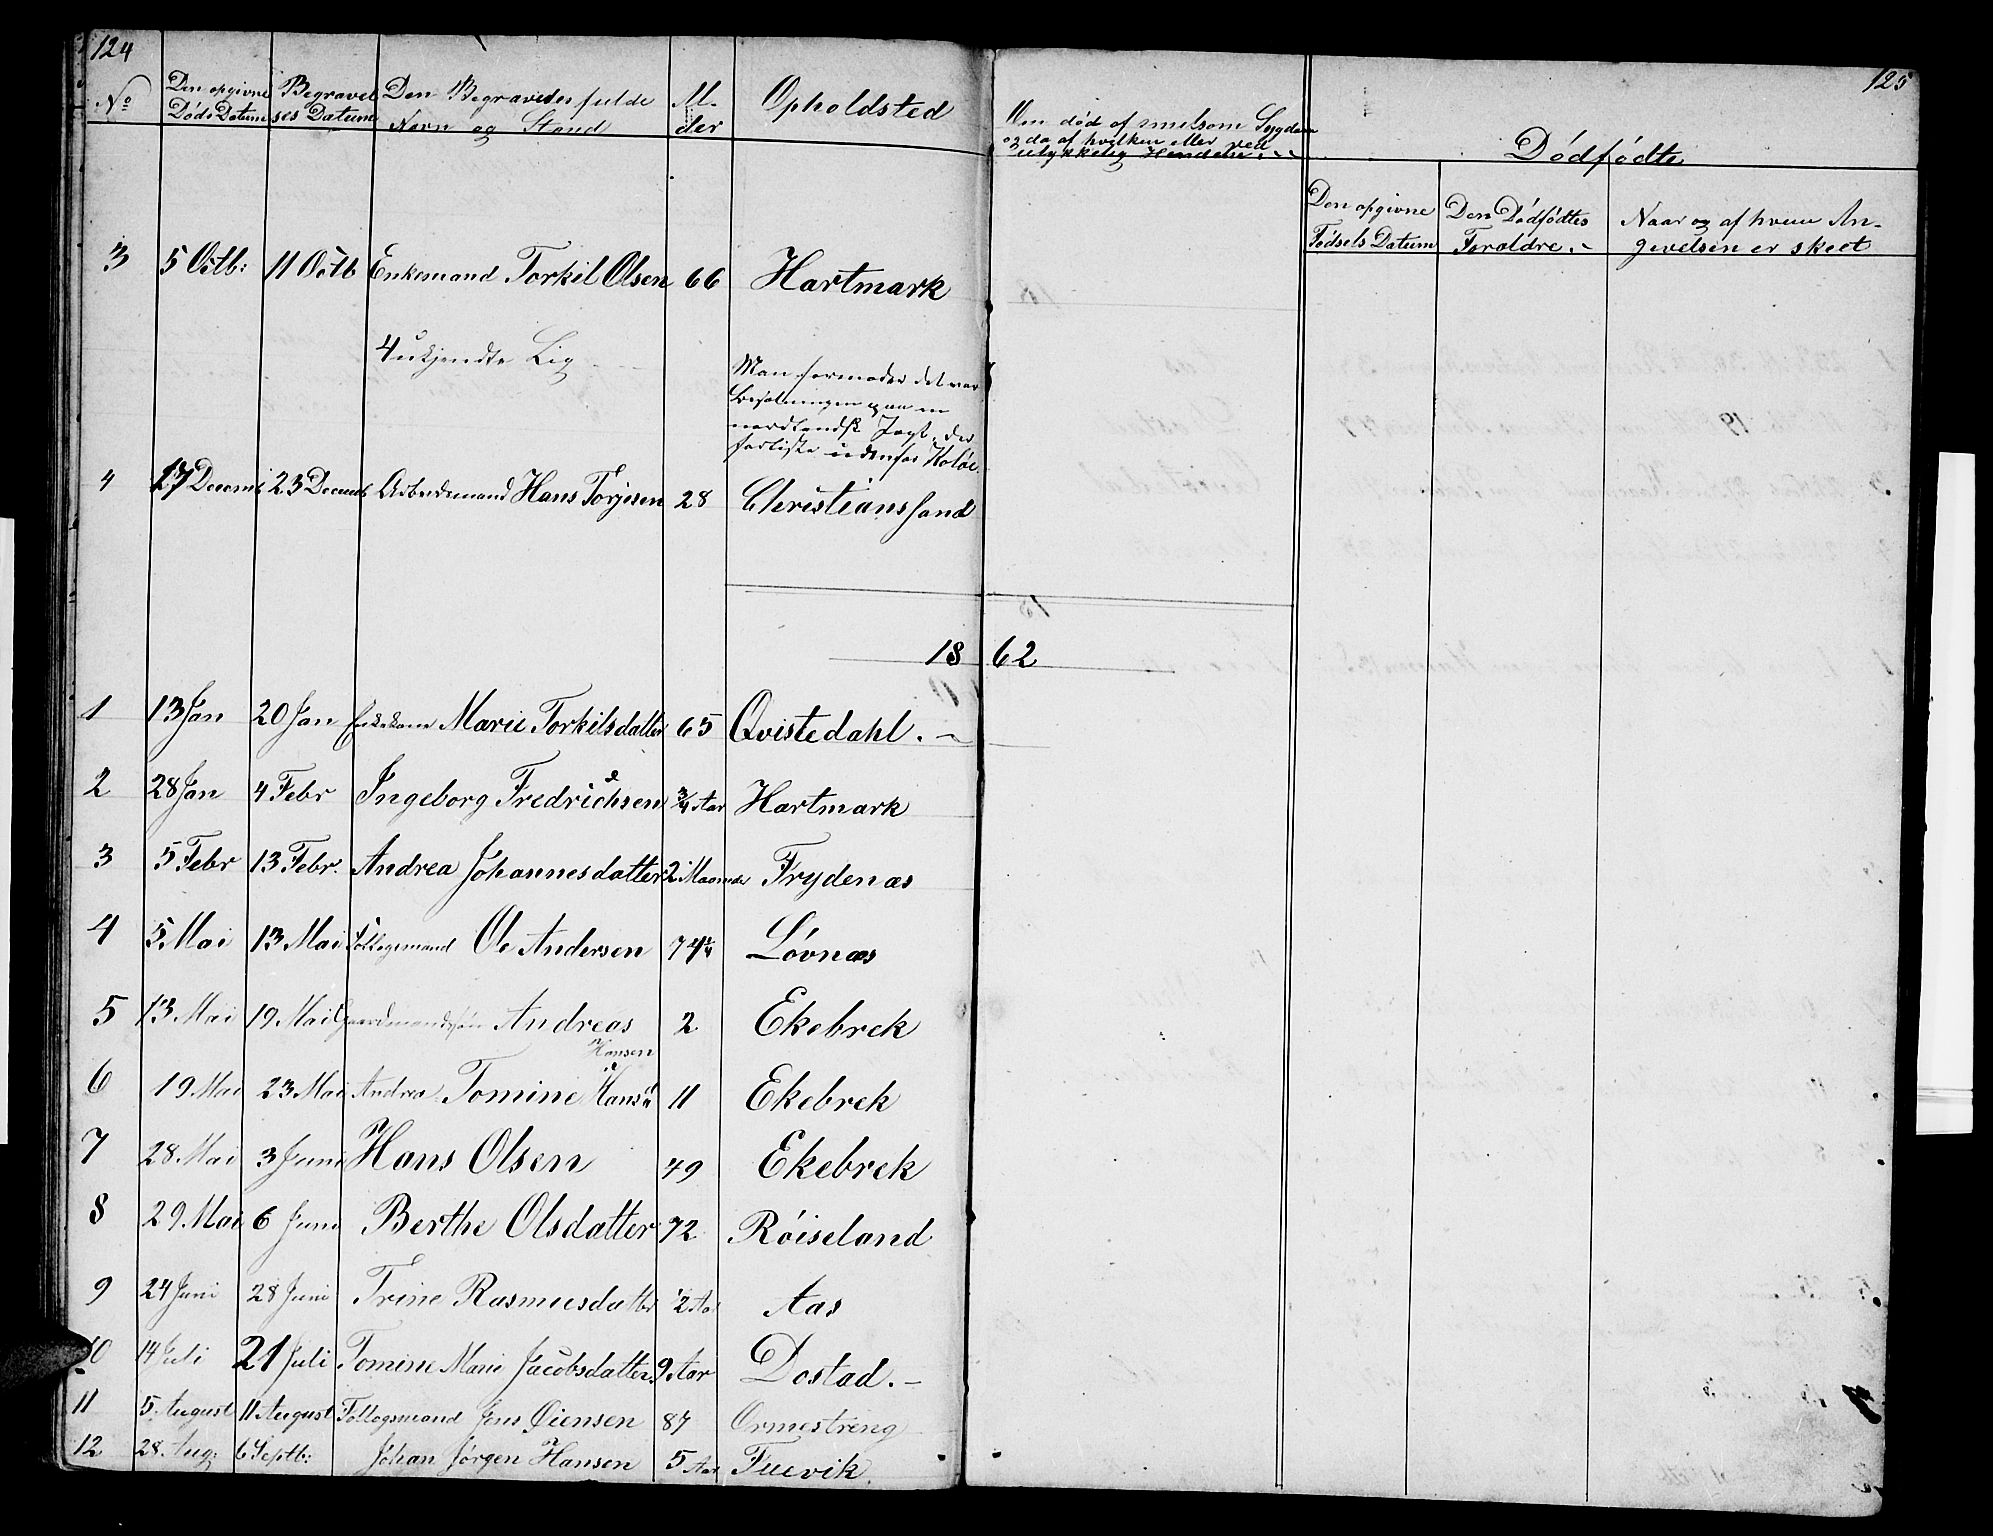 124
125
No Den opgivne Døds Datum Begravelses Datum Den Begravedes fulde Navn og Stand Alder Opholdsted
Om død af smitsom Sygdom og da af hvilken eller ved ulykkelig Hendelse
Dødfødte
Den opgivne Fødsels Datum Den Dødfødtes Forældre. Naar og af hvem Angivelsen er skeet
3 5 Octb: 11 Octb Enkemand Torkil Olsen 66 Hartmark
4 ukjendte Lig
Man formoder det var
Besætningen paa en
nordlandsk Jagt, der
forliste udenfor
4 17 Decemb 23 Decemb Arbeidsmand Hans Torjesen 28 Christianssand
1862
1 13 Jan 20 Jan Enkekone Marie Torkilsdatter 65 Qvistedahl.
2 28 Jan 4 Febr Ingeborg Fredrichsen 3/4 Aar Hartmark
3 5 Febr 13 Febr. Andrea Johannesdatter 2 Maaneder Frydenæs
4 5 Mai 13 Mai Føllogsmand Ole Andersen 74 Løvnæs
5 13 Mai 19 Mai Gaardmandssøn Andreas Hansen 2 Ekebrek
6 19 Mai 23 Mai Andrea Tomine Hansd 11 Ekebrek
7 28 Mai 3 Juni Hans Olsen 49 Ekebrek
8 29. Mai 6 Juni Berthe Olsdatter 72 Røiseland
9 24 Juni 28 Juni Trine Rasmusdatter 2 Aar Aas
10 14 Juli 21 Juli Tomine Marie Jacobsdatter. 9 Aar Dostad.
11 5. August 11 August Føllogsmand Jens Øiensen 87 Ormestreng
12 28. Aug: 6 Septb: Johan Jørgen Hansen 5 Aar Fuevik.